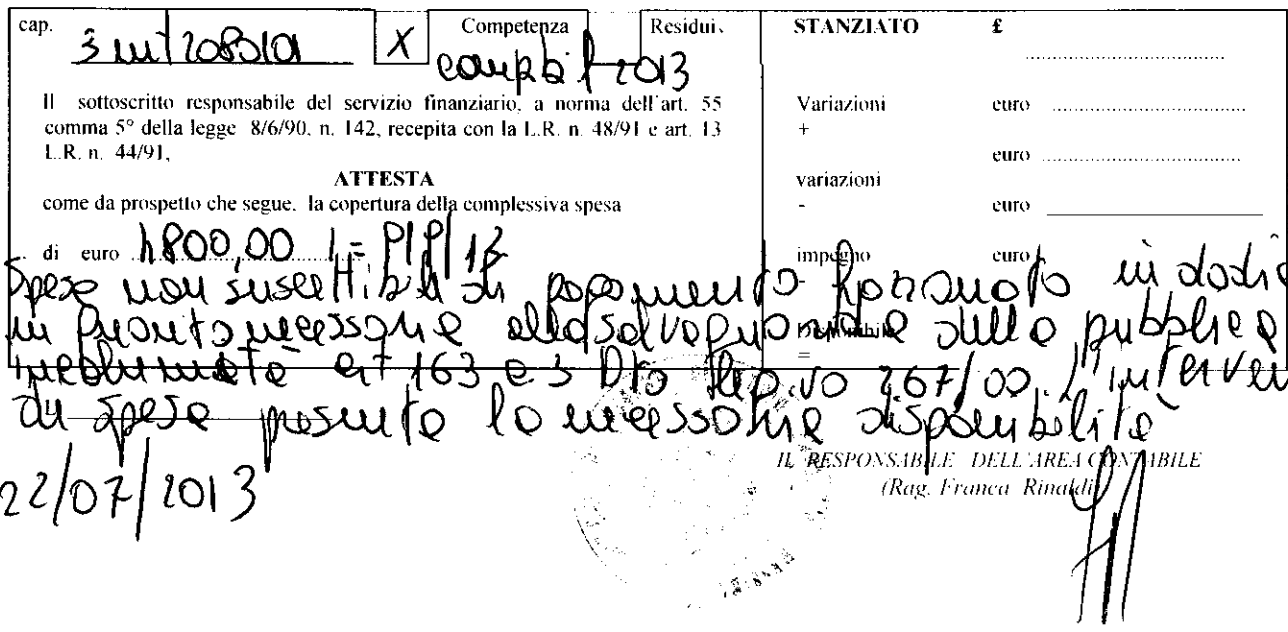 cap. 3 int 2080101 X Competenza Residui
comp bil 2013
Il sottoscritto responsabile del servizio finanziario, a norma dell'art. 55
comma 5° della legge 8/6/90, n. 142, recepita con la L.R. n. 48/91 e art. 13
L.R. n. 44/91,
ATTESTA
come da prospetto che segue. la copertura della complessiva spesa
di euro 1800,00
STANZIATO £
Variazioni euro
+
euro
variazioni
- euro
impegno euro
-
Disponibilità
=
Spesa non suscettibile di pagamento frazionato in dodic
in quanto necessaria alla salvaguardia della pubblica
incolumità art 163 e 3 D.to leg.vo 267/00. L'interven
di spesa presenta la necessaria disponibilità
22/07/2013
IL RESPONSABILE DELL'AREA CONTABILE
(Rag. Franca Rinaldi)